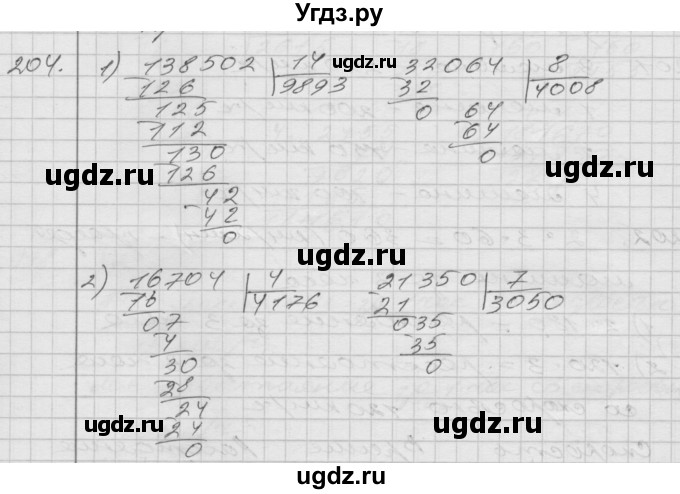 Угдз.ру
204. 1) 138502 14 32064 8
126 9893 32 4008
125 0 64
112 64
130 0
126
42
42
0
2) 16704 4 21350 7
16 4176 21 3050
07 035
4 35
30 0
28
24
24
0
ugdz.ru
ugdz.ru
ugdz.ru
ugdz.ru
ugdz.ru
ugdz.ru
ugdz.ru
ugdz.ru
ugdz.ru
Угдз.ру